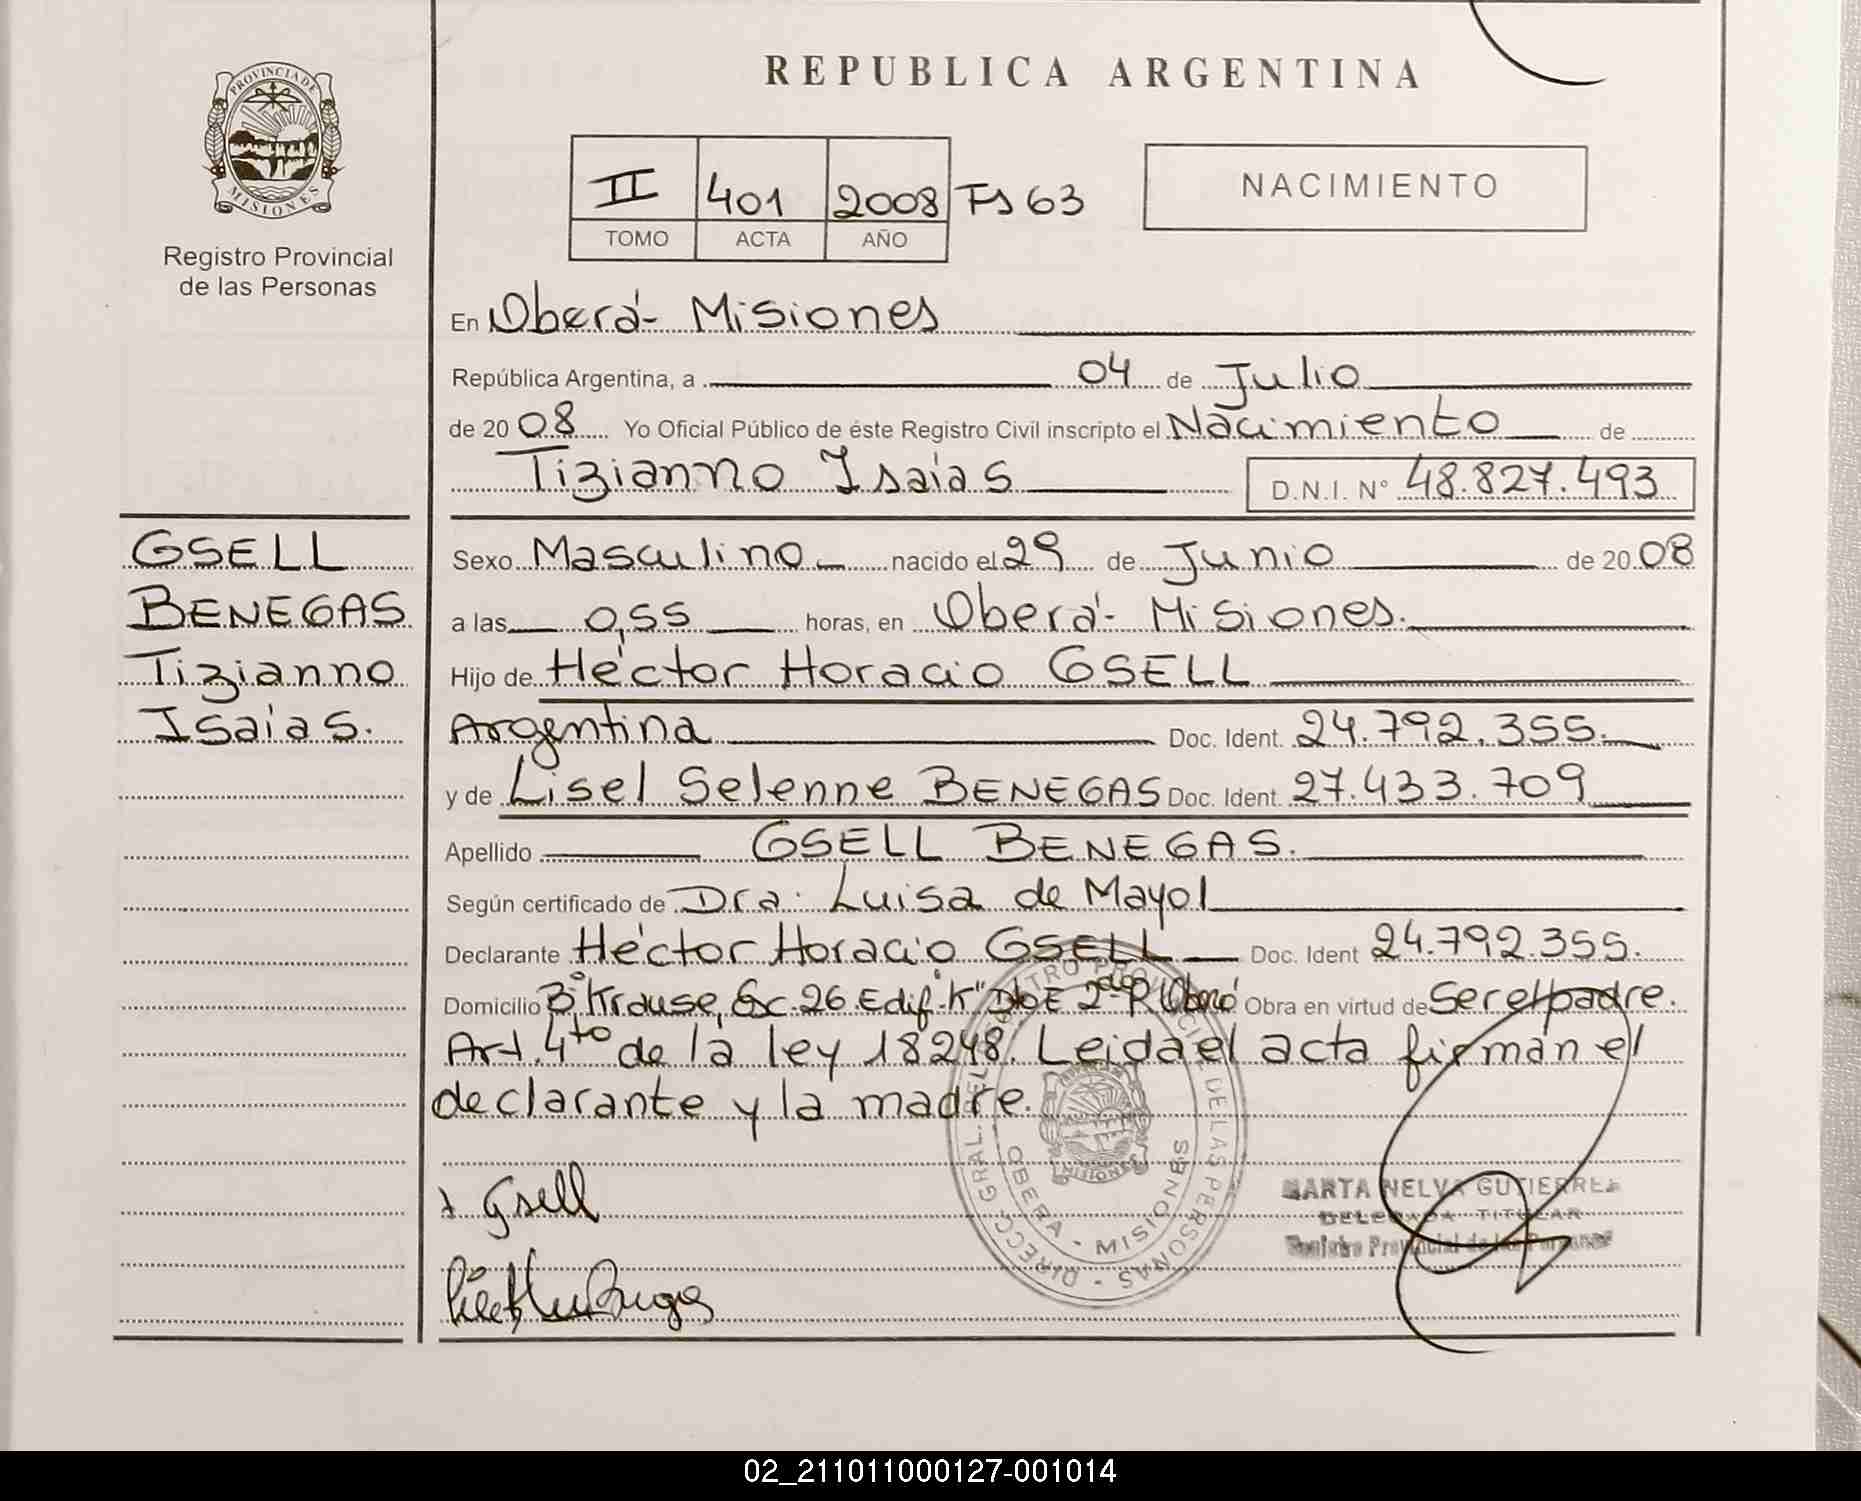 REPUBLICA ARGENTINA
PROVINCIA DE
MISIONES
Registro Provincial
de las Personas
II 401 2008 Fs 63
TOMO ACTA AÑO
NACIMIENTO
En Oberá- Misiones
República Argentina, a 04 de Julio
de 2008 Yo Oficial Público de éste Registro Civil inscripto el Nacimiento de
Tizianno Isaias D.N.I. N° 48.827.493
GSELL
BENEGAS
Tizianno
Isaias.
Sexo Masculino nacido el 29 de Junio de 2008
a las 0,55 horas, en Oberá- Misiones.
Hijo de Héctor Horacio GSELL
Argentina Doc. Ident. 24.792.355.
y de Lisel Selenne BENEGAS Doc. Ident. 27.433.709
Apellido GSELL BENEGAS.
Según certificado de Dra. Luisa de Mayol
Declarante Héctor Horacio GSELL Doc. Ident 24.792.355.
Domicilio B° Krause, Esc. 26 Edif. "K" Dto E 2do P. Oberá Obra en virtud de Ser el padre.
Art. 4to de la ley 18248. Leida el acta firman el
declarante y la madre.
DIRECC. GRAL. DEL REGISTRO PROVINCIAL DE LAS PERSONAS
OBERA - MISIONES
MISIONES
Gsell
MARTA NELVA GUTIERREZ
DELEGADA TITULAR
Registro Provincial de las Personas
02_211011000127-001014